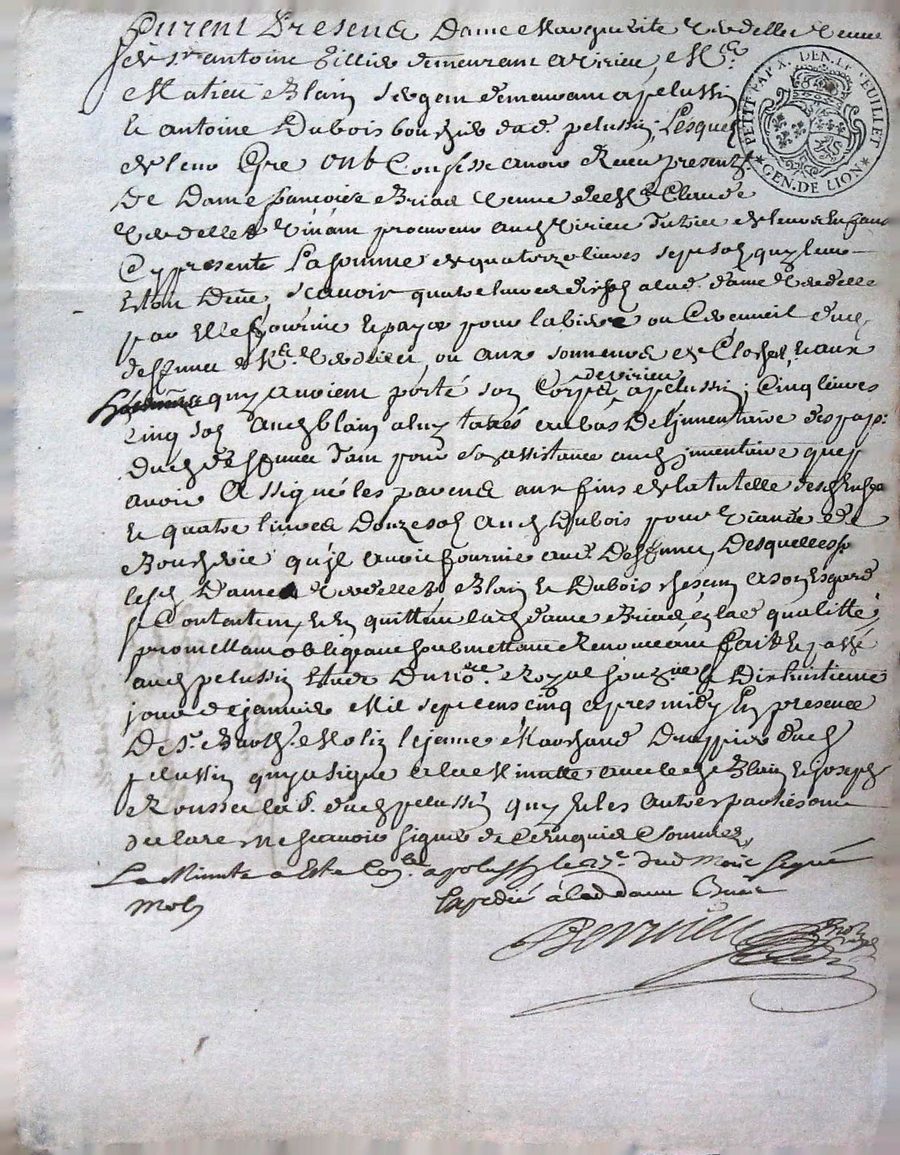 furent presens Dame Marguerite Verdellet veuve
de Sr antoine Tillier demeurant a virieu, Me
Matieu Blain sergent demeurant a pelussin
et antoine Dubois bouchier dud. pelussin; Lesquels
de leur Gré ont Confessé avoir Receu presentt
De Dame françoise Briad veuve de Me Claude
Verdellet vivant procureur aud virieu Tutrice de leurs Enfans
Cy presente La somme de quatorze livres sept sols quy leur
Estoit Deue, scavoir quatre livres dix sols a lad. dame Verdellet
par Elle fournie et payée pour la biere ou Cercueil dud.
deffunct Me Verdellet ou aux sonneurs de Cloches, et aux
quy avoient porté son Corps de virieu a pelussin; Cinq livres
cinq sols aud blain a luy taxés au bas De l'jnventaire des pap.
dud deffunct Tant pour son assistance aud jnventaire que p
avoir assigné les parens aux fins de la tutelle desd Enfans
et quatre livres Douze sols aud Dubois pour viande de
Boucherie qu'jl avoit fournie aud. Deffunct, Desquelles s
lesd Dame Verdellet, Blain et Dubois chescun a son Esgard
se Contentent, et en quittent lad dame Briad en lad qualitté,
promettant obligeant soubmettant Renonceant fait et passé
aud pelussin Etude Du nore Royal soubzné Le Dixhuitieme
jour de janvier Mil sept cens cinq apres midy En presence
De Sr. Barth. Molin le jeune Marchand Drappier dud
pelussin quy a signé a la Minutte avec led Blain et joseph
Rousset la dud pelussin quy et les autres parties ont
declaré ne scavoir signer de Ce Enquis et sommés,
La Minute a Esté Con.lée a pelussin le 27e dud Mois signé
Mol Expedié à lad dame Briad